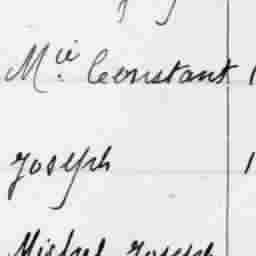 Mie. Constant 1
Joseph 1
Michel Joseph